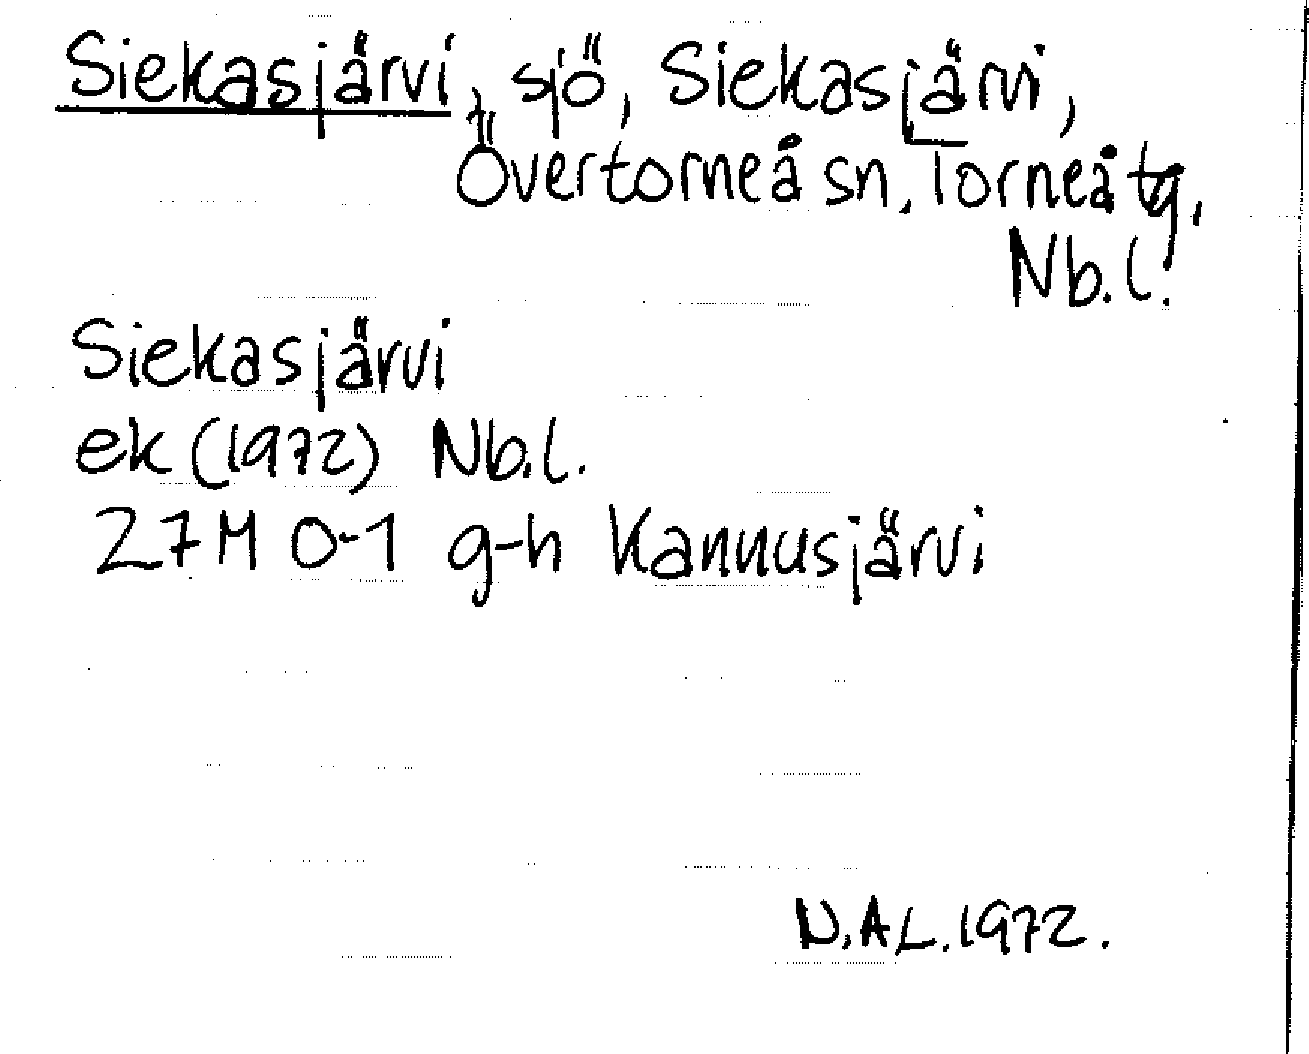 Siekasjärvi, sjö, Siekasjärvi,
Övertorneå sn, Torneå tg,
Nb.l.
Siekasjärvi
ek (1972) Nb.l.
27M 0-1 g-h Kannusjärvi
N.A.L. 1972.